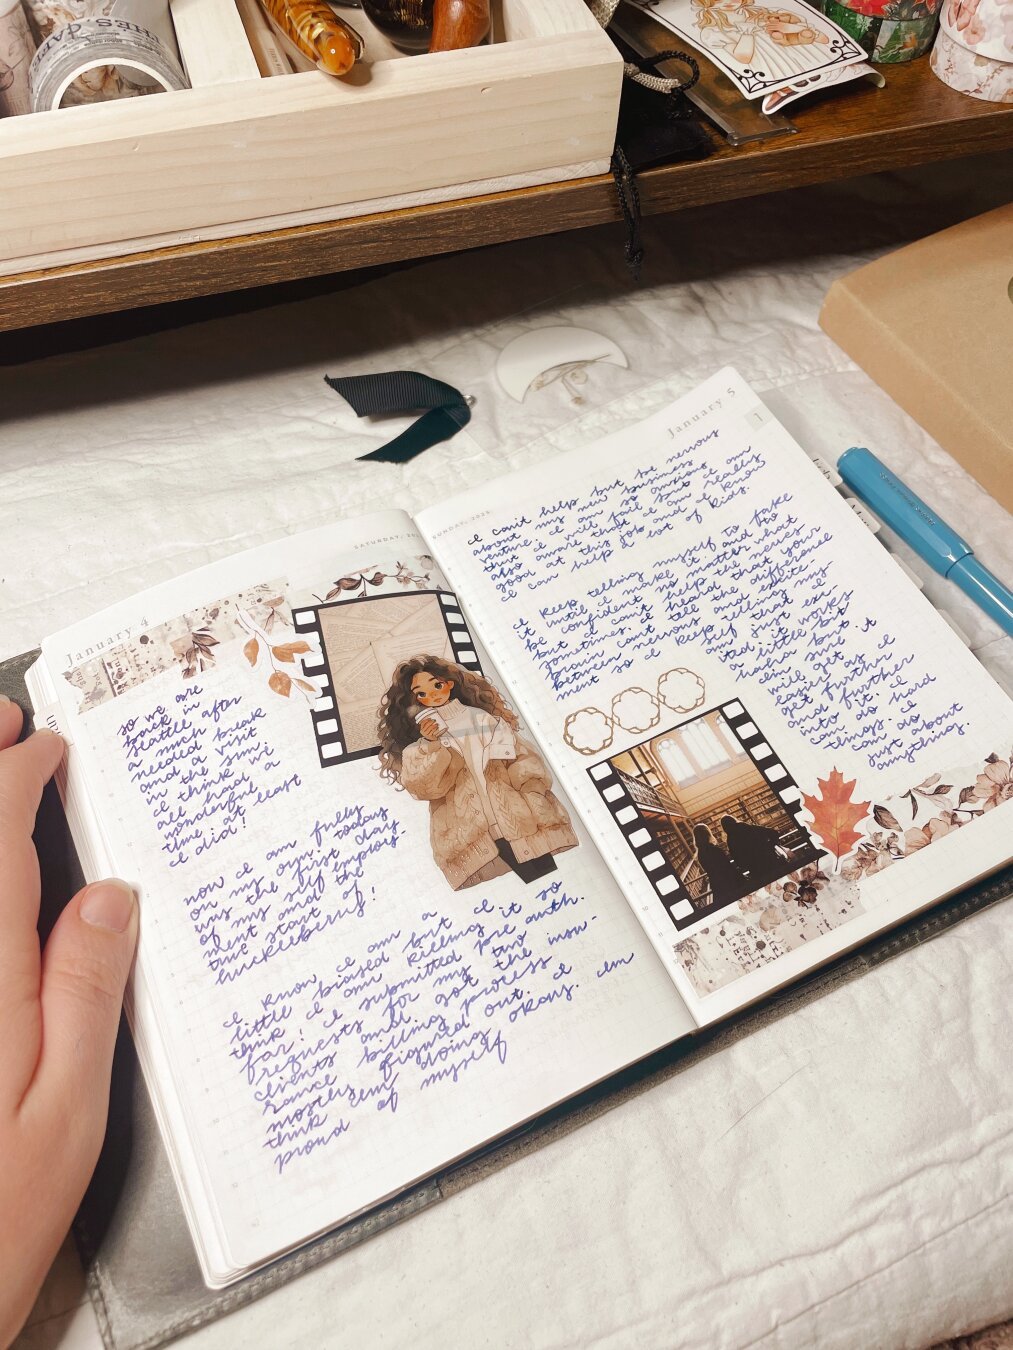 January 4
SATURDAY, 20
so we are
back in
seattle after
a much
needed break
and a visit
in the sun.
I think we
all had a
wonderful
time at least
I did!
now I am fully
on my own. today
was the first day
of my self employ-
ment and the
true start of
huckleberry!
I know I am a
little biased but I
think I am killing it so
far! I submitted pre auth.
requests for my two
clients and got the insu-
rance billing process
mostly figured out. I
think I'm doing okay. I'm
proud of myself
January 5
1
SUNDAY, 2025
I can't help but be nervous
about my new business
venture. I am so anxious
that I will fail but I am
also aware that I am really
good at this job and I know
I can help a lot of kids.
I keep telling myself to fake
it until I make it and to
be confident no matter what
but I can't help the nerves
sometimes. I heard that your
brain can't tell the difference
between nervous and excite-
ment so I keep telling my
self that I
am just exci-
ted. it works
a little bit
haha but
I'm sure it
will get
easier as I
get further
and further
into it. I
can do hard
things. I
can do
just about
anything.